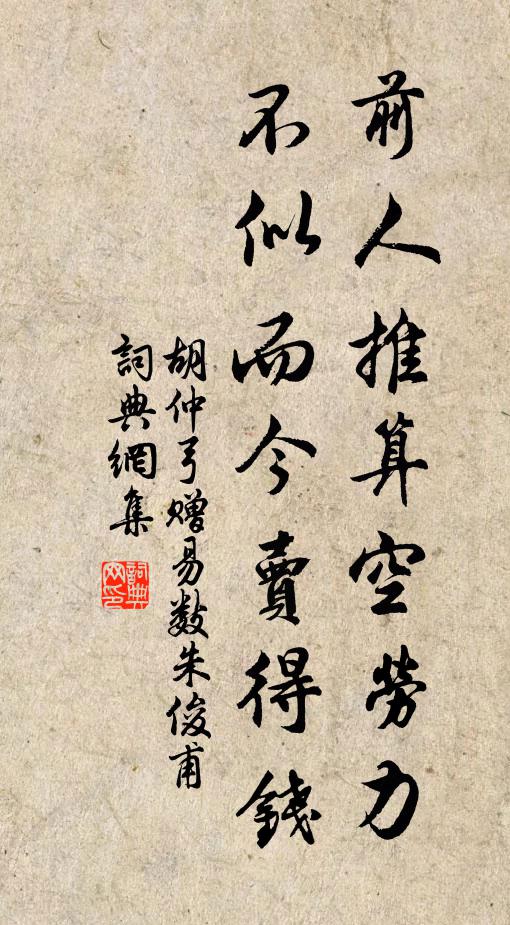 前人推算空勞力
不似而今賣得錢
胡仲弓贈易數朱俊甫
詞典網集
詞典网印